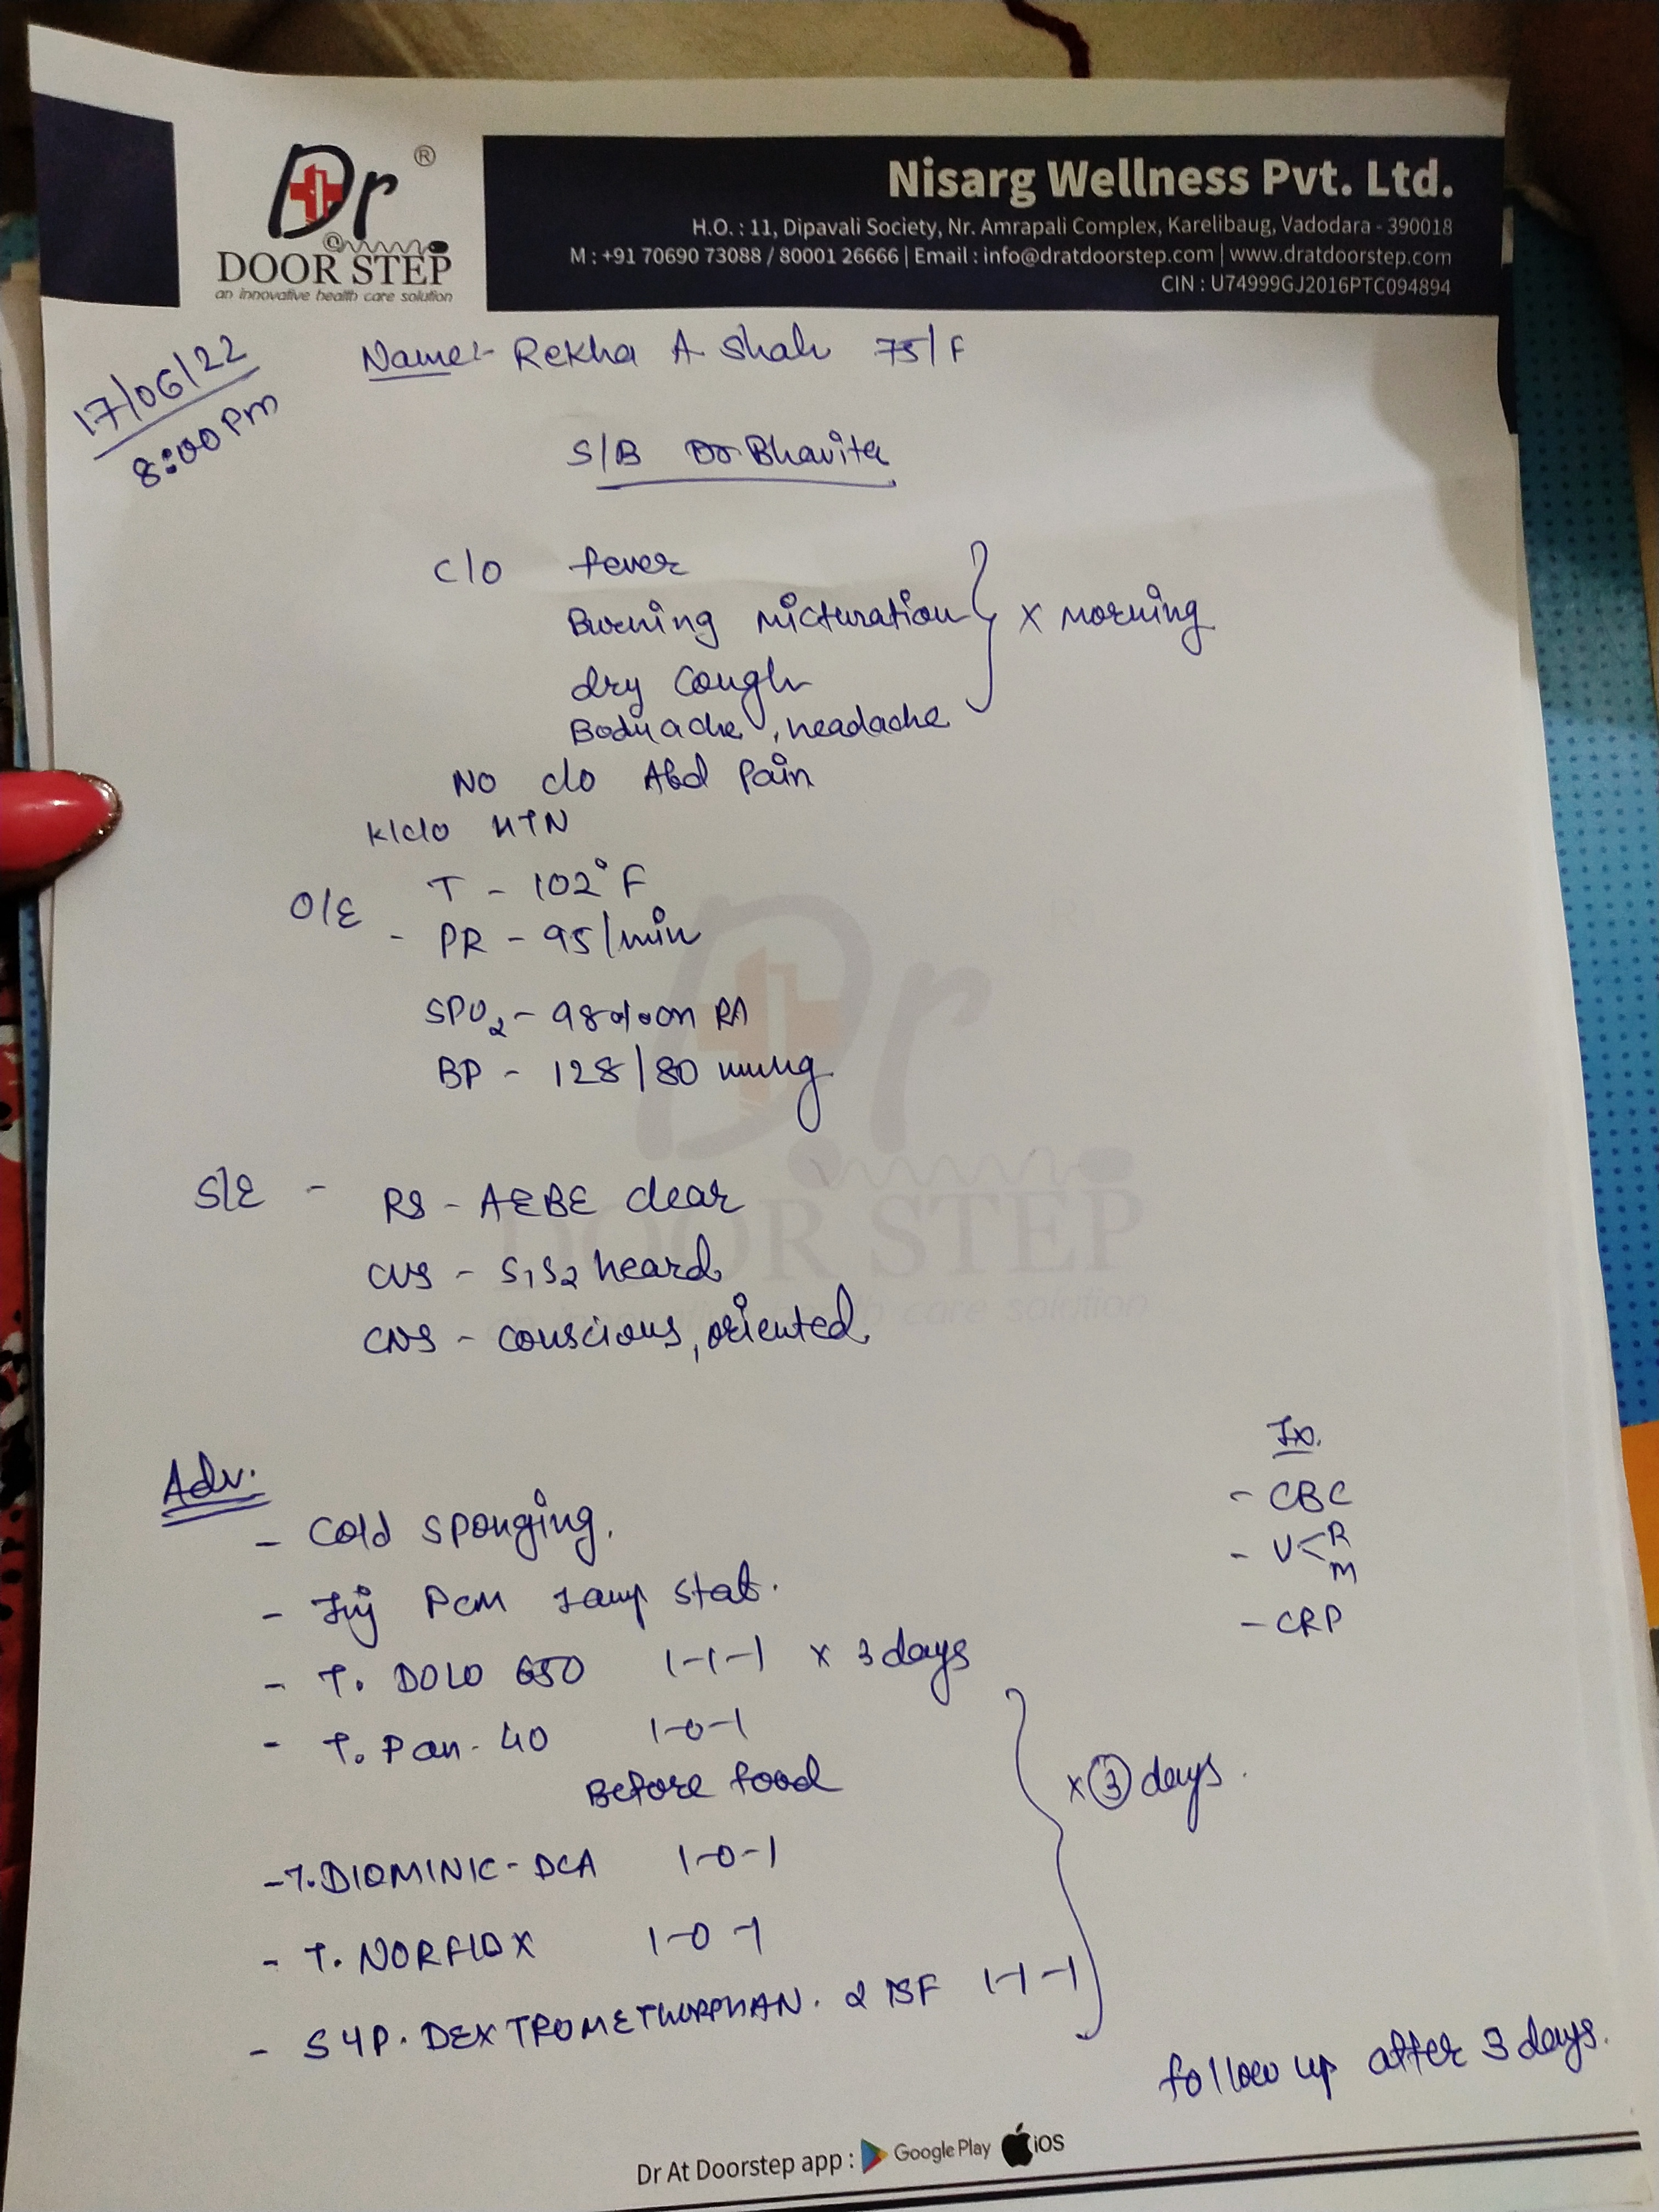 Dr ®
@
DOOR STEP
an innovative health care solution
Nisarg Wellness Pvt. Ltd.
H.O. : 11, Dipavali Society, Nr. Amrapali Complex, Karelibaug, Vadodara - 390018
M : +91 70690 73088 / 80001 26666 | Email : info@dratdoorstep.com | www.dratdoorstep.com
CIN : U74999GJ2016PTC094894
17/06/22
8:00 Pm
Name:- Rekha A Shah 75/F
S/B Dr Bhavita
c/o fever
Burning micturation } x morning
dry cough
Bodyache, headache
No c/o Abd Pain
K/c/o HTN
O/E - T - 102°F
PR - 95/min
SPO2 - 98% on RA
BP - 128/80 mmHg
S/E - RS - AEBE clear
CVS - S1S2 heard
CNS - conscious, oriented
Adv.
- Cold sponging.
- Inj PCM 1amp stat.
- T. DOLO 650 1-1-1 x 3 days
- T. Pan-40 1-0-1
Before food
x 3 days.
- T. DIOMINIC-DCA 1-0-1
- T. NORFLOX 1-0-1
- SYP. DEXTROMETHORPHAN. 2 TSF 1-1-1
Ix.
- CBC
- U < R
M
- CRP
follow up after 3 days.
Dr
DOOR STEP
an innovative health care solution
Dr At Doorstep app : Google Play iOS